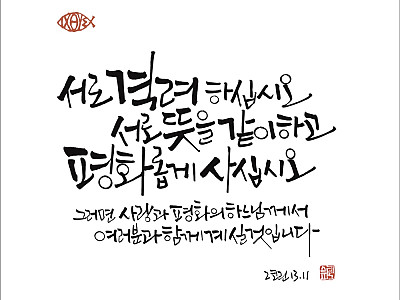 ΙΧΘΥΣ
서로 격려 하십시오
서로 뜻을 같이하고
평화롭게 사십시오
그러면 사랑과 평화의 하느님께서
여러분과 함께 계실 것입니다
2코린 13.11